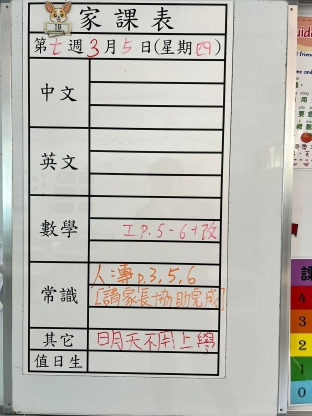 1B
家課表
第七週3月5日(星期四)
中文
英文
數學
工P.5-6+改
常識
人專p.3,5,6
[請家長協助完成]
其它
明天不用上學
值日生
課
4
3
2
1
0